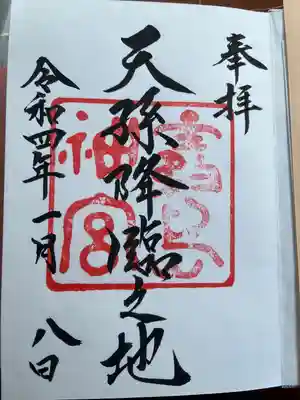 奉拝
天孫降臨之地
令和四年一月八日
神宮